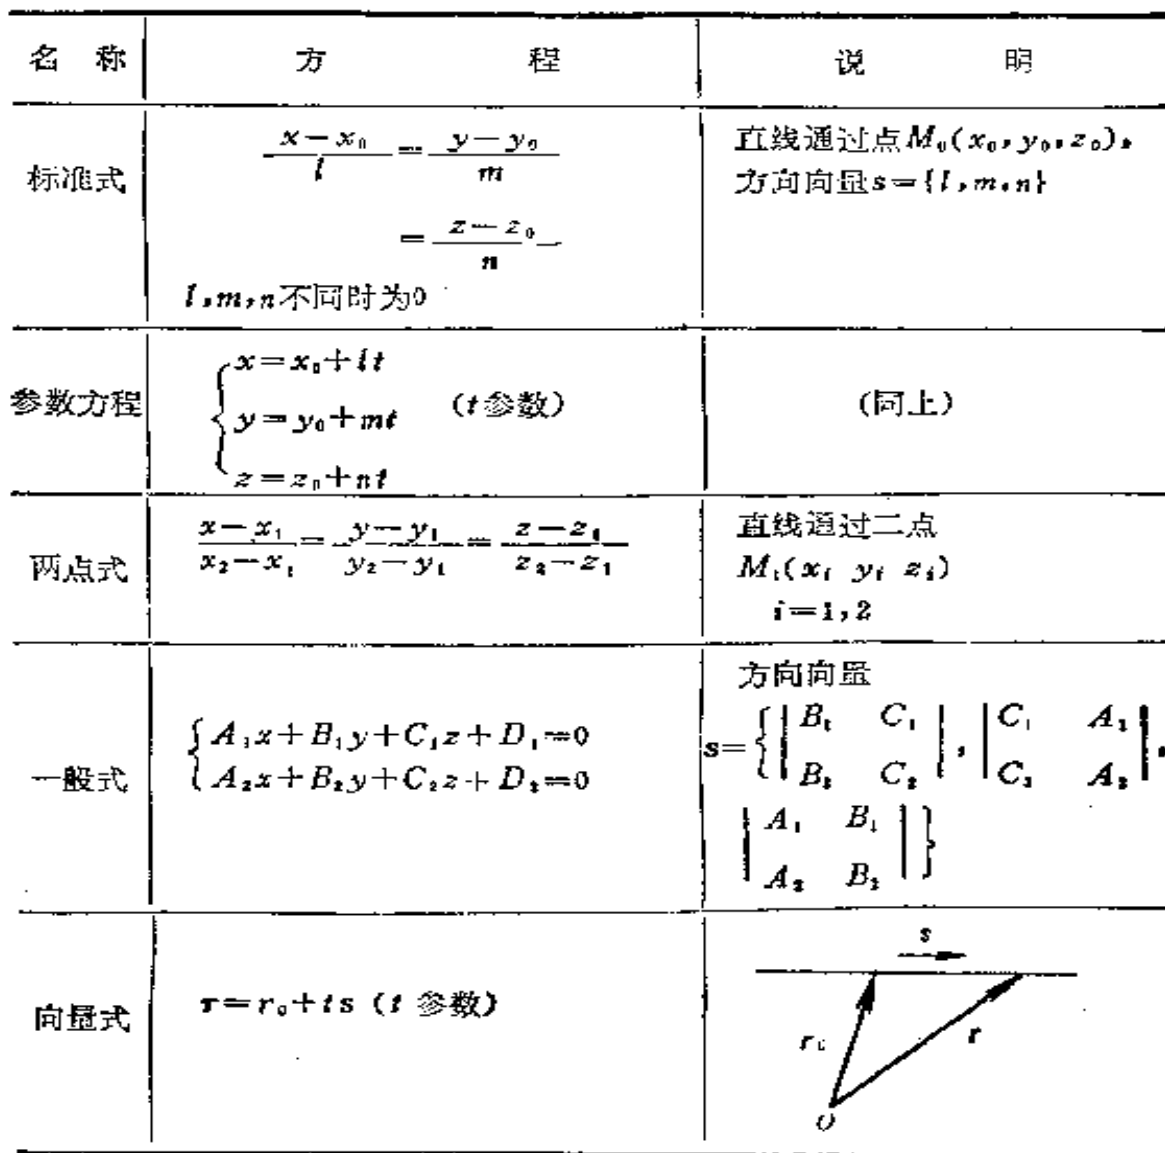 名 称 方 程 说 明
标准式
(x-x₀)/l = (y-y₀)/m
= (z-z₀)/n
l,m,n不同时为0
直线通过点M₀(x₀,y₀,z₀),
方向向量s={l,m,n}
参数方程
{x=x₀+lt
y=y₀+mt (t参数)
z=z₀+nt
(同上)
两点式
(x-x₁)/(x₂-x₁) = (y-y₁)/(y₂-y₁) = (z-z₁)/(z₂-z₁)
直线通过二点
Mᵢ(xᵢ yᵢ zᵢ)
i=1,2
一般式
{A₁x+B₁y+C₁z+D₁=0
A₂x+B₂y+C₂z+D₂=0
方向向量
s={|B₁ C₁|, |C₁ A₁|,
|B₂ C₂| |C₂ A₂|
|A₁ B₁|}
|A₂ B₂|
向量式
r=r₀+ts (t 参数)
s
r₀
r
O